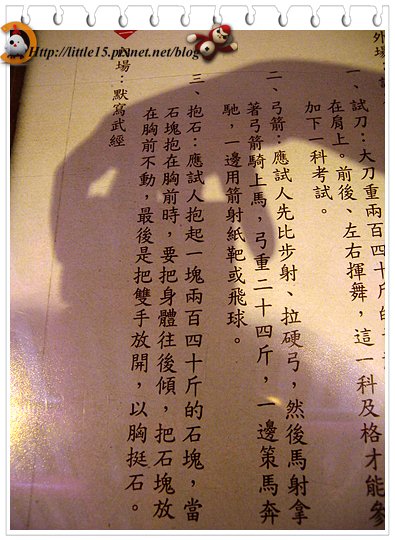 Http://little15.pixnet.net/blog
外場：
一、試刀：大刀重兩百四十斤的
在肩上。前後、左右揮舞，這一科及格才能參
加下一科考試。
二、弓箭：應試人先比步射、拉硬弓，然後馬射拿
著弓箭騎上馬，弓重二十四斤，一邊策馬奔
馳，一邊用箭射紙靶或飛球。
三、抱石：應試人抱起一塊兩百四十斤的石塊，當
石塊抱在胸前時，要把身體往後傾，把石塊放
在胸前不動，最後是把雙手放開，以胸挺石。
場：默寫武經